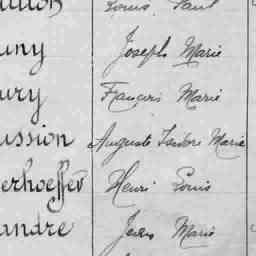 Louis Paul
uny Joseph Marie
ury François Marie
ussion Auguste Isidore Marie
erhoeffer Henri Louis
andre Jean Marie